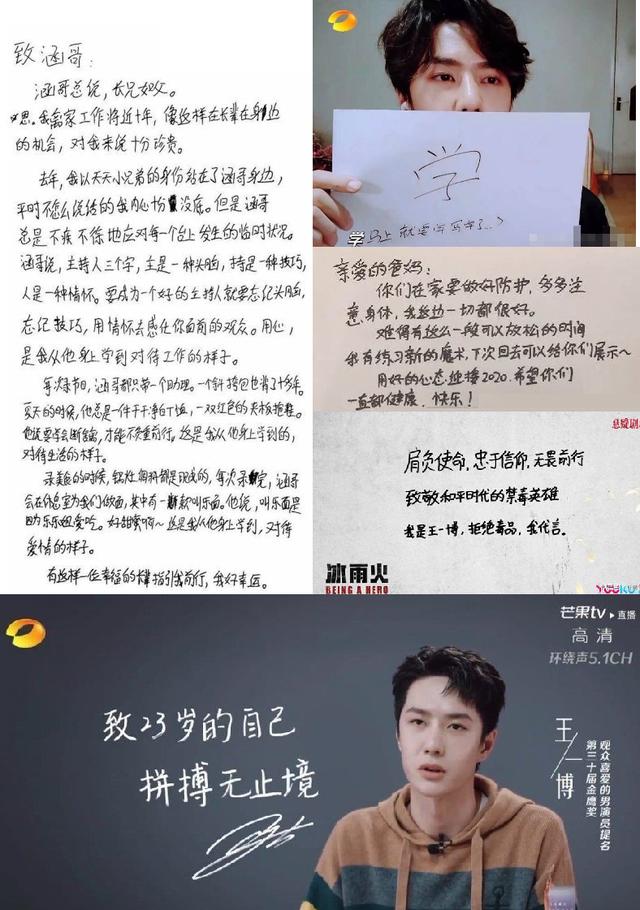 致涵哥：
涵哥总说，长兄如父。
我离家工作将近十年，像这样在长辈在身边
的机会，对我来说十分珍贵。
去年，我以天天小兄弟的身份站在了涵哥身边，
平时不怎么说话的我内心十分没底。但是涵哥
总是不疾不徐地应对每个台上发生的临时状况。
涵哥说，主持人三个字，主是一种头脑，持是一种技巧，
人是一种情怀。要成为一个好的主持人就要忘记头脑，
忘记技巧，用情怀去感任你面前的观众。用心，
是我从他身上学到对待工作的样子。
每次录节目，涵哥都只带一个助理。一个针挎包也背了十多年。
夏天的时候，他总是一件干干净白T恤，一双红色的夹板拖鞋。
他说要学会断舍离，才能不负重前行。这是我从他身上学到的，
对待生活的样子。
录美食的时候，锅灶淘料都是现成的，每次录完，涵哥
会在休息室为我们做面，其中有一款叫乐面。他说，叫乐面是
因为乐乐姐爱吃。好甜蜜啊~ 这是我从他身上学到，对待
爱情的样子。
有这样一位幸福的榜样指引我前行，我好幸运。
学
学 马上就要学写字了...?
亲爱的爸妈：
你们在家要做好防护，多多注
意身体，我这边一切都很好。
难得有这么一段可以放松的时间
我有练习新的魔术，下次回去可以给你们展示~
用好的心态迎接2020.希望你们
一直都健康、快乐！
肩负使命，忠于信仰，无畏前行
致敬和平时代的禁毒英雄
我是王一博，拒绝毒品，我代言。
冰雨火
BEING A HERO
YOUKU
芒果tv 直播
高清
环绕声5.1CH
致23岁的自己
拼搏无止境
王一博
观众喜爱的男演员提名
第三十届金鹰奖